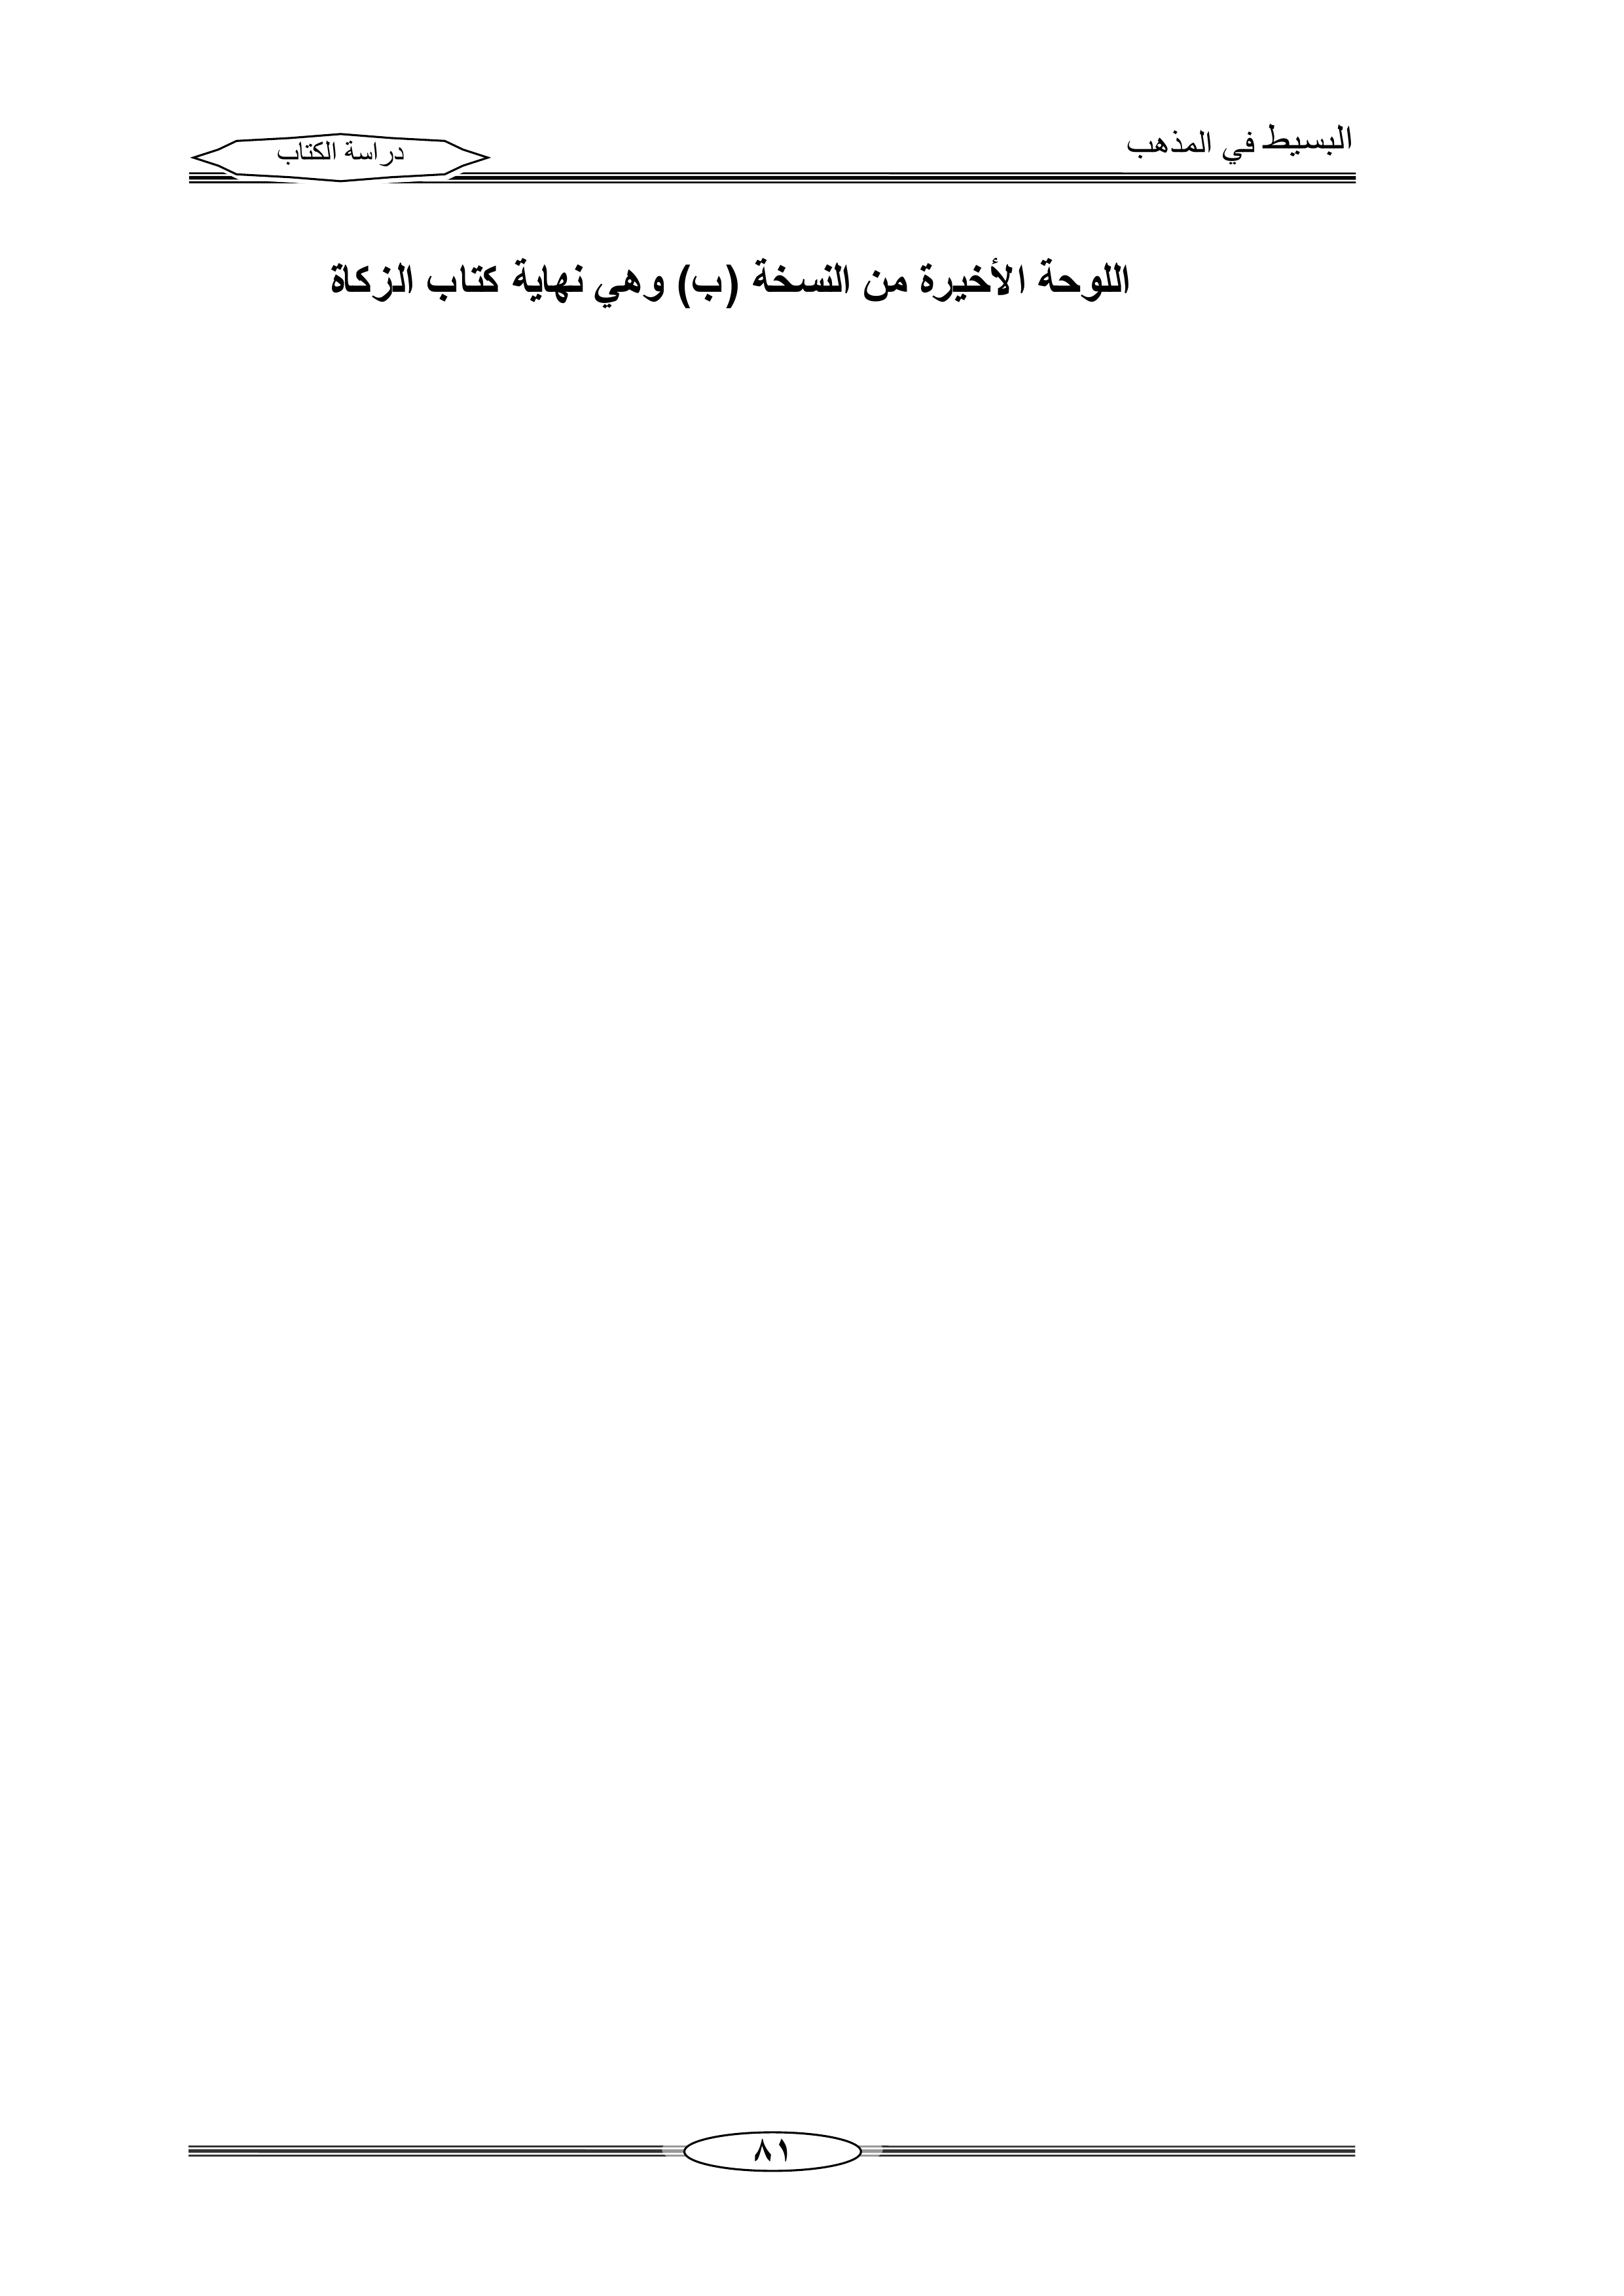 البسيط في المذهب
دراسة الكتاب
اللوحة الأخيرة من النسخة (ب) وهي نهاية كتاب الزكاة
٨١